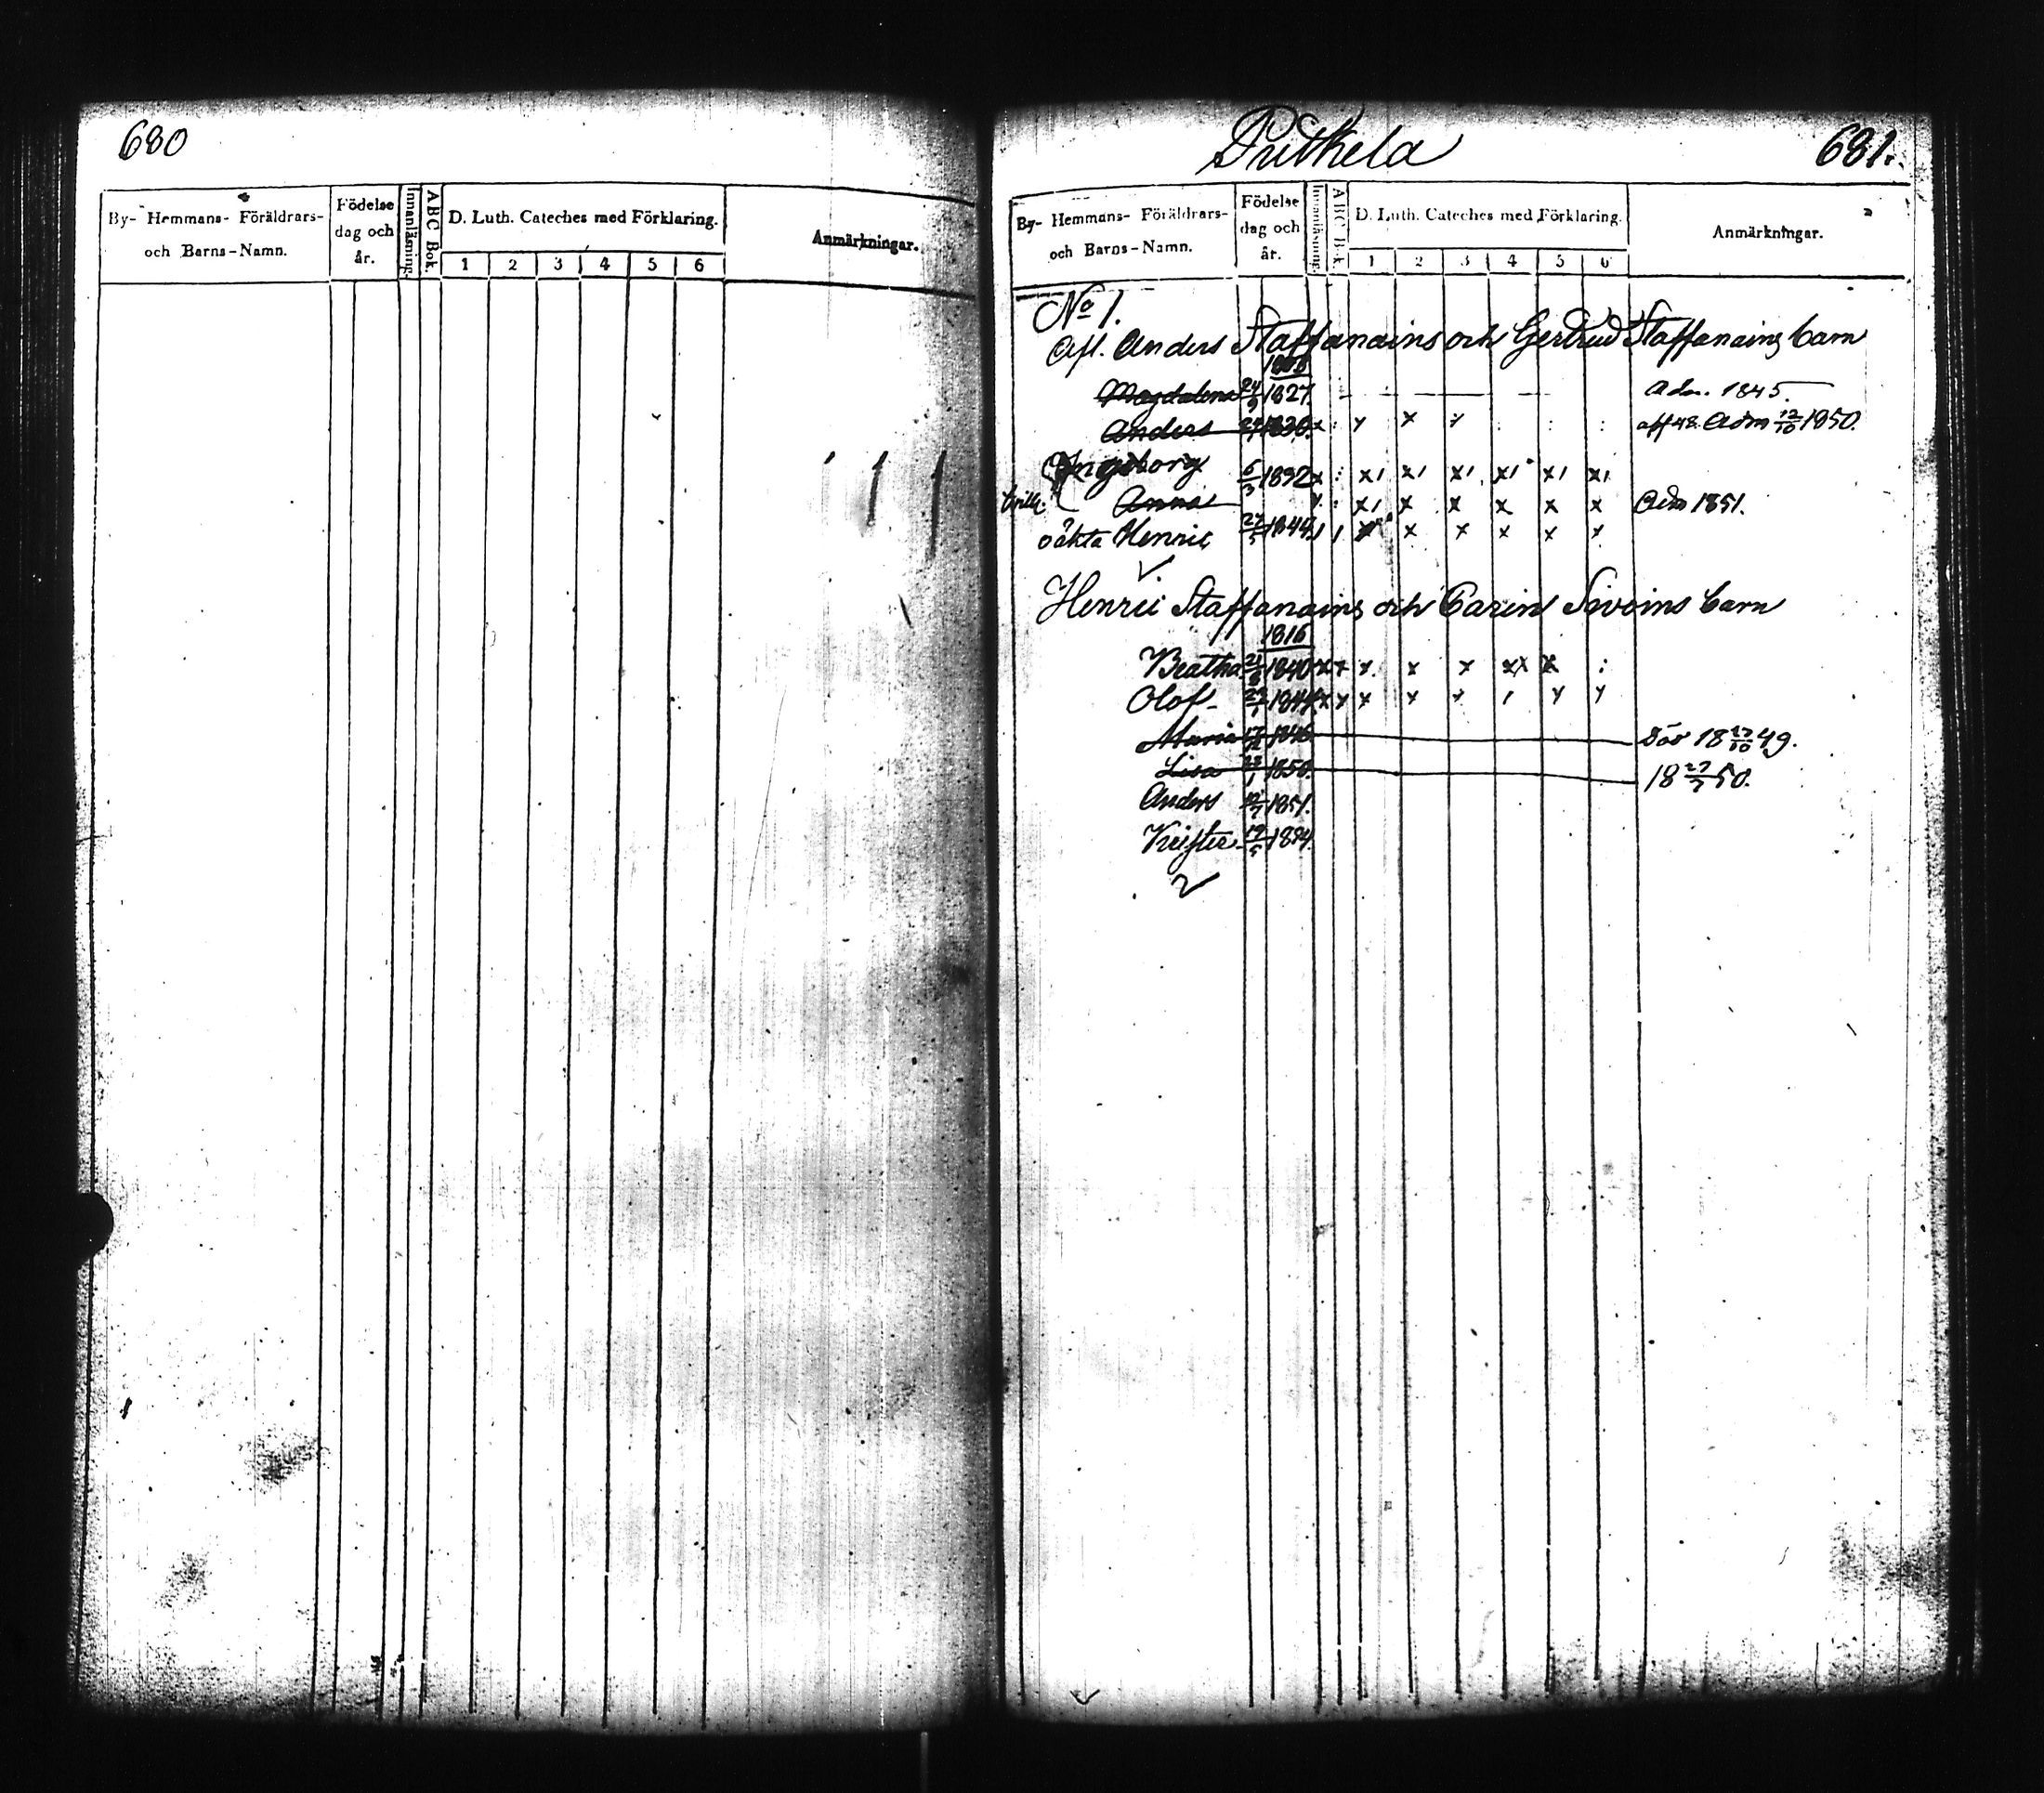 680
By- Hemmans- Föräldrars- och Barns-Namn.
Födelse dag och år.
Innanläsning.
ABC Bok.
D. Luth. Cateches med Förklaring.
1 2 3 4 5 6
Anmärkningar.
681.
By- Hemmans- Föräldrars- och Barns-Namn.
Födelse dag och år.
Innanläsning.
ABC Bok.
D. Luth. Cateches med Förklaring.
1 2 3 4 5 6
Anmärkningar.
No 1.
Afl. Anders Staffanains och Gertrud Staffanains barn
Magdalena 24/9 1827. Adm. 1845.
Anders 1830. x : y x y : : : aff 48. Adm 12/10 1850.
Ingeborg 6/3 1832 x : x1 x1 x1 x1 x1 x1
Anna y : x1 x x x x x Adm 1851.
oäkta Henric 27/5 1844 1 1 x x x x x x
Henric Staffanains och Carin Sivoins barn
1816
Beatha 1840 x x x x x xx x :
Olof 1844 x y x x y 1 y y
Maria 1846 Död 18 27/10 49.
Lisa 1850. 18 27/7 50.
Anders 12/7 1851.
Krister 19/5 1854.
2